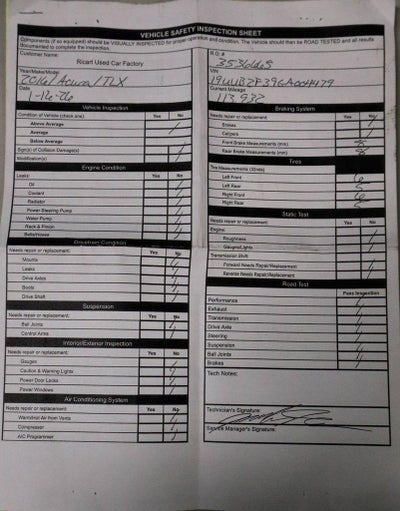 VEHICLE SAFETY INSPECTION SHEET
Components (if so equipped) should be VISUALLY INSPECTED for proper operation and condition. The vehicle should then be ROAD TESTED and all results
documented to complete the inspection.
Customer Name:
Ricart Used Car Factory
Year/Make/Model:
2016/ Acura/TLX
Date
Vehicle Inspection
Condition of Vehicle (check one) Yes No
Above Average
Average
Below Average
Sign(s) of Collision Damage(s)
Modification(s)
Engine Condition
Leaks: Yes No
Oil
Coolant
Radiator
Power Steering Pump
Water Pump
Rack & Pinion
Belts/Hoses
Drivetrain Condition
Needs repair or replacement: Yes No
Mounts
Leaks
Drive Axles
Boots
Drive Shaft
Suspension
Needs repair or replacement: Yes No
Ball Joints
Control Arms
Interior/Exterior Inspection
Needs repair or replacement: Yes No
Gauges
Caution & Warning Lights
Power Door Locks
Power Windows
Air Conditioning System
Needs repair or replacement: Yes No
Warm/cool Air from Vents
Compressor
A/C Programmer
R.O. #
VIN
Current Mileage
113,932
Braking System
Needs repair or replacement: Yes No
Brakes
Calipers
Front Brake Measurements (mm) 8
Rear Brake Measurements (mm) 8
Tires
Tire Measurements (32nds)
Left Front 6
Left Rear
Right Front 6
Right Rear
Static Test
Needs repair or replacement: Yes No
Engine
Roughness
Gauges/Lights
Transmission Shift
Forward Needs Repair/Replacement
Reverse Needs Repair/Replacement
Road Test
Pass Inspection
Performance
Exhaust
Transmission
Drive Axle
Steering
Suspension
Ball Joints
Brakes
Tech Notes:
Technician's Signature:
Service Manager's Signature: